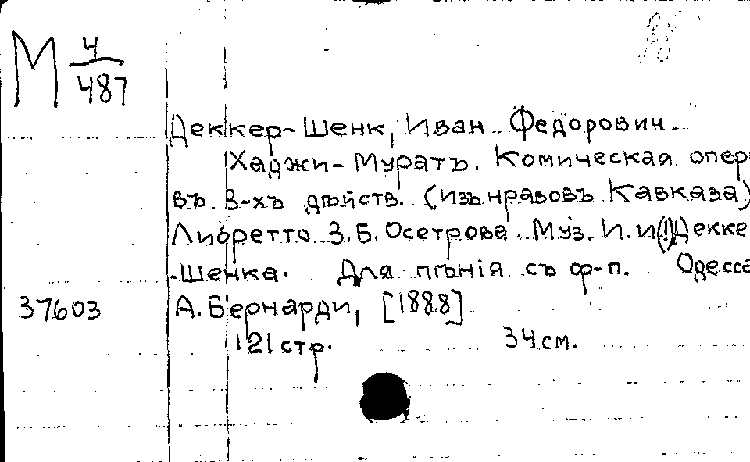 М 4/487
Деккер-Шенк, Иван Федорович.
Хаджи-Муратъ. Комическая опер
въ 3-хъ дѣйств. (изъ нравовъ Кавказа)
Либретто З.Б. Осетрова Муз. И. и(!) Декке
-Шенка. Для пѣнія съ ф-п. Одесса
37603 А. Бернарди, [1888]
121 стр. 34 см.